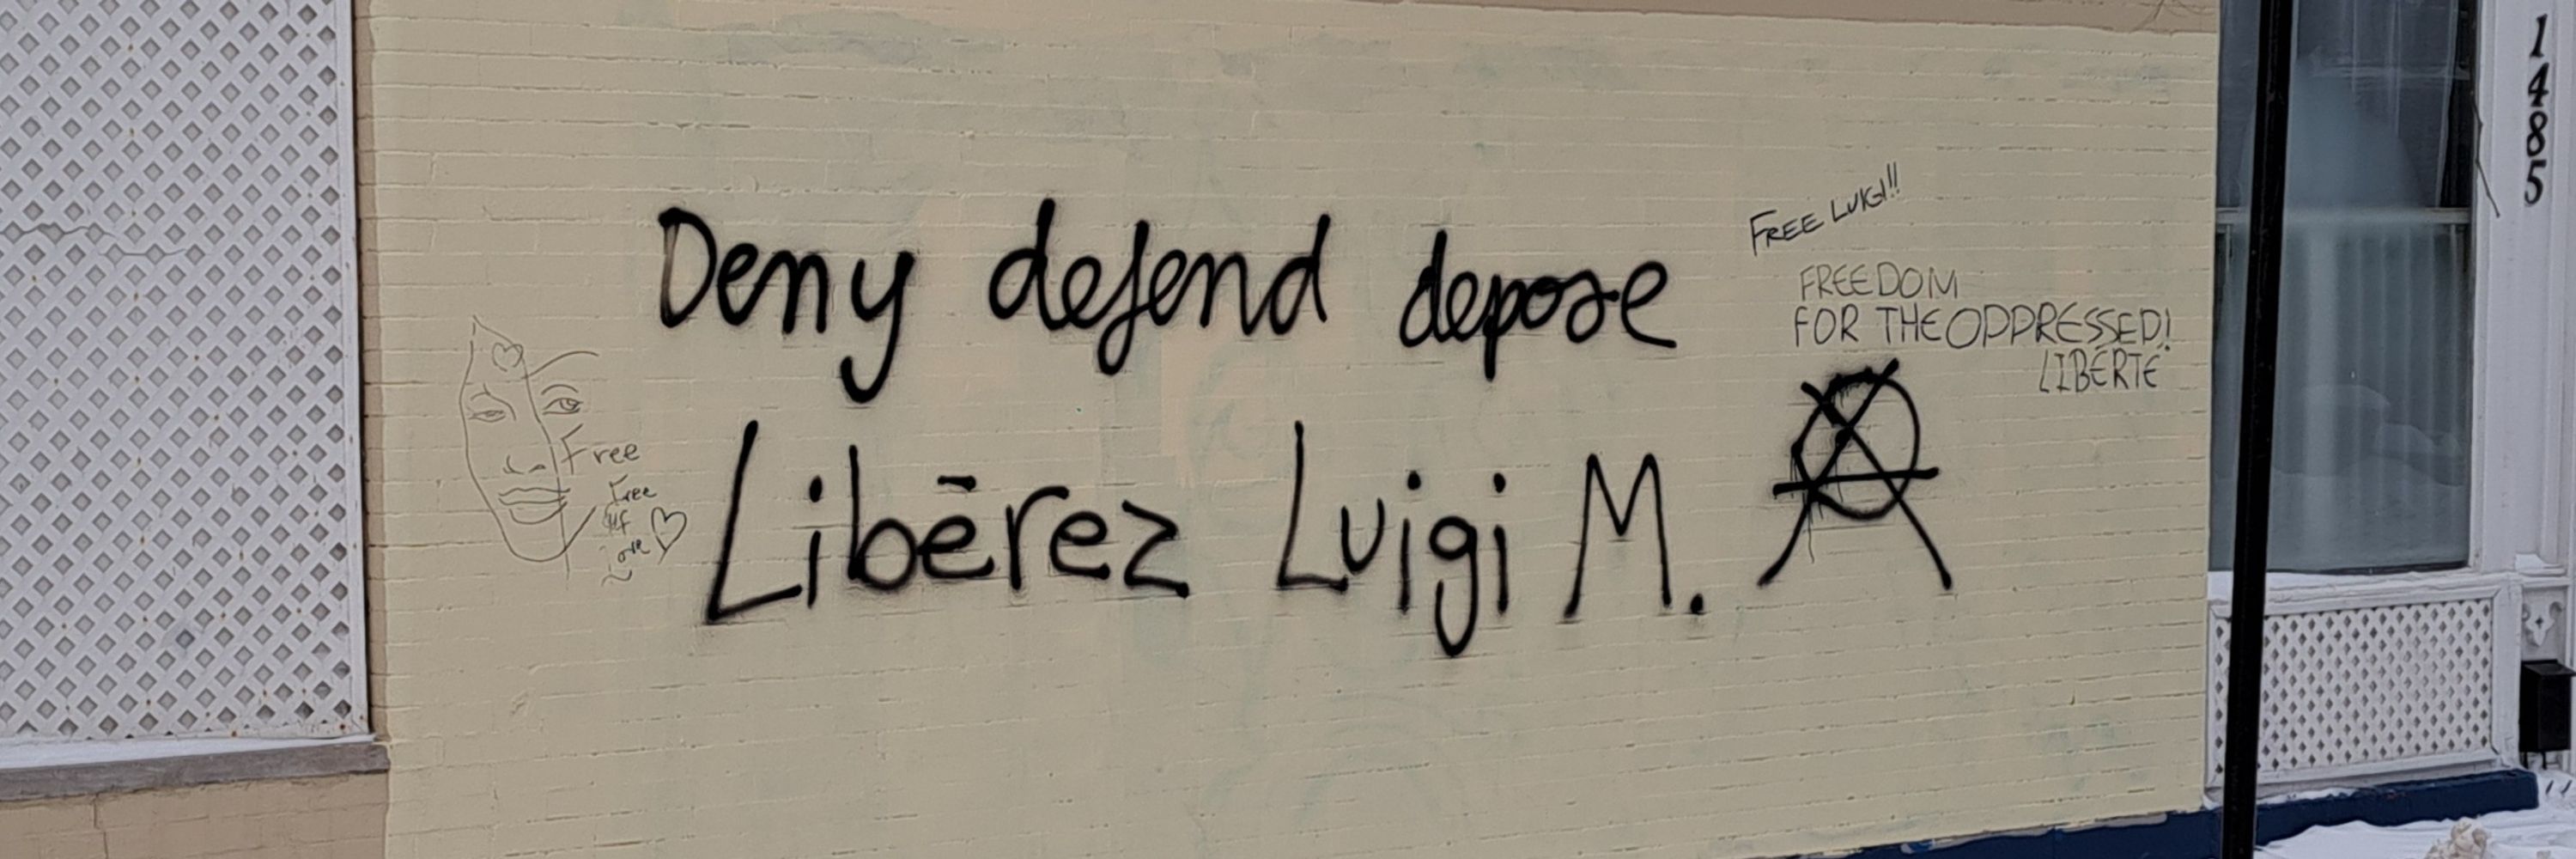 Deny defend depose
Libérez Luigi M.
FREE LUIGI!!
FREEDOM
FOR THE OPPRESSED!
LIBÉRTÉ
Free
Free
Love
1485